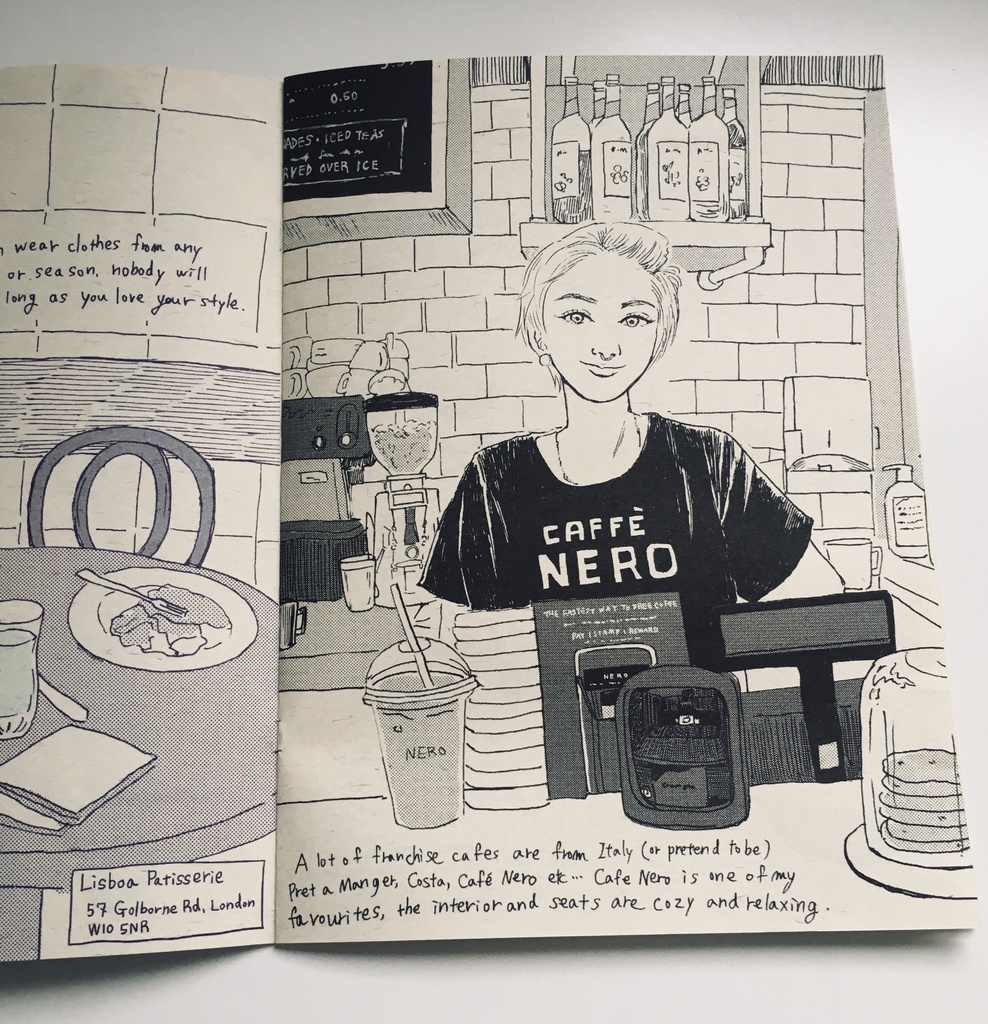 wear clothes from any
or season, nobody will
long as you love your style.
Lisboa Patisserie
57 Golborne Rd, London
W10 5NR
0.60
ADES · ICED TEAS
RVED OVER ICE
CAFFÈ
NERO
THE FASTEST WAY TO FREE COFFEE
PAY | STAMP | REWARD
NERO
NERO
A lot of franchise cafes are from Italy (or pretend to be)
Pret a Manger, Costa, Café Nero etc... Cafe Nero is one of my
favourites, the interior and seats are cozy and relaxing.